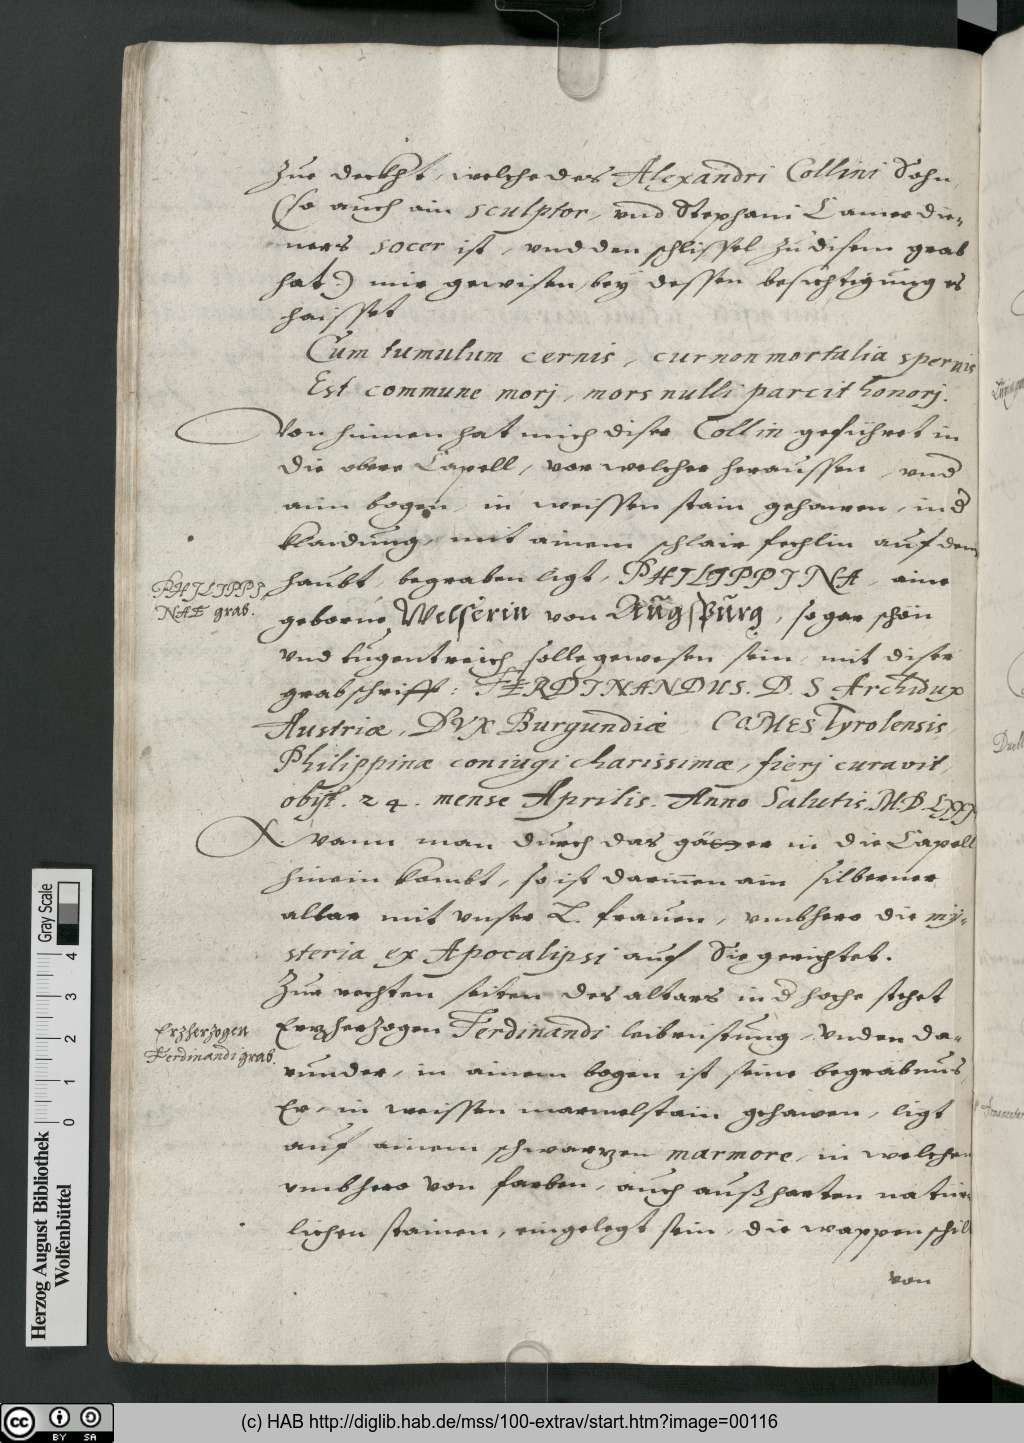 Zue deckht, welche des Alexandri Collini Sohn,
(so auch ain sculptor, vnd Stephani Camerdie-
ners socer ist, vnd den schlissel zu disem grab
hat:) mir gewisen, bey dessen besichtigung es
haisset
Cum tumulum cernis, cur non mortalia spernis
Est commune morj, mors nulli parcit honorj.
Von hinnen hat mich diser Collin gefüehret in
die obere Capell, vor welcher heraussen, vnd
aim bogen, in weissen stain gehawen, in d
klaidung, mit ainem schlair fechlin auf dem
haubt, begraben ligt, PHILIPPINA, aine
PHILIPPI,
NAE grab.
geborne Welserin von Augspurg, so gar schön
vnd tugentreich solle gewesen sein, mit diser
grabschrifft: FERDINANDUS. D. S Archidux
Austriæ, DVX Burgundiæ COMES Tyrolensis,
Philippinæ coniugi charissimæ, fierj curavit,
obijt. 24. mense Aprilis. Anno Salutis. M.D.LXXX
Wann man durch das gätter in die Capell
hinein kombt, so ist darinnen ain silberner
altar mit vnser L. frauen, vmbhero die my-
steria ex Apocalipsi auf Sie gerichtet.
Zur rechten seiten des altars in d höche stehet
Erzherzogen
Ferdinandi grab.
Erzherzogen Ferdinandi leibrüstung, Vnden da-
runder, in ainem bogen ist seine begräbnus,
Er, in weissen marmelstain gehawen, ligt
auf ainem schwarzen marmore, in welchen
vmbhero von farben, auch auß harten natür
lichen stainen, eingelegt sein, die wappenschil
von
Herzog August Bibliothek
Wolfenbüttel
0 1 2 3 4
Gray Scale
cc BY SA
(c) HAB http://diglib.hab.de/mss/100-extrav/start.htm?image=00116